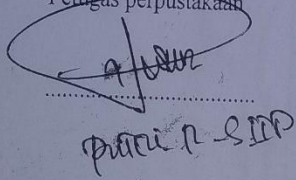 Petugas perpustakaan
Putri R. S.IIP